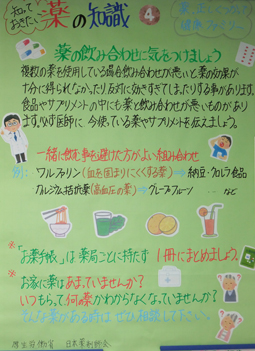 知って
おきたい 薬の知識 4
薬の飲み合わせに気をつけましょう
複数の薬を使用している場合飲み合わせが悪いと薬の効果が
十分に得られなかったり反対に効きすぎてしまったりする事があります。
食品やサプリメントの中にも薬と飲み合わせが悪いものがあり
ます。必ず医師に 今使っている薬やサプリメントを伝えましょう。
一緒に飲む事を避けた方がよい組み合わせ
例: ワルファリン(血を固まりにくくする薬)⇒納豆・クロレラ食品
カルシウム拮抗薬(高血圧の薬)⇒グレープフルーツ など
※「お薬手帳」は薬局ごとに持たず 1冊にまとめましょう。
※お家に薬はあまっていませんか?
いつもらって何の薬かわからなくなっていませんか?
そんな薬がある時は ぜひ相談して下さい。
厚生労働省 日本薬剤師会